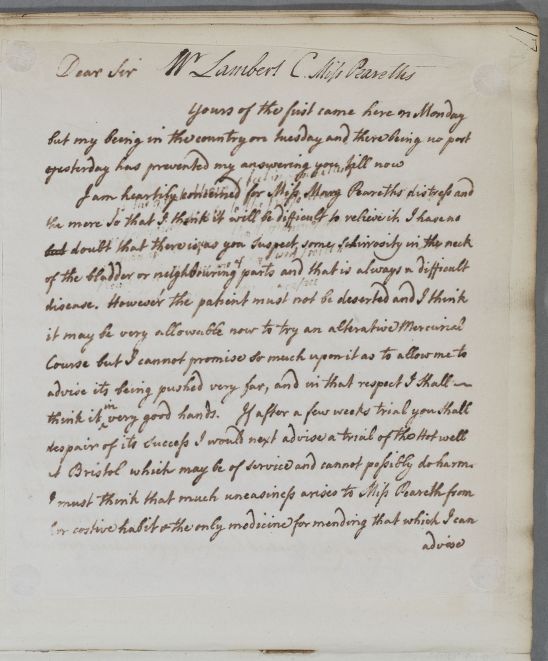 Dear Sir Mr Lambert C. Miss Peareths
Yours of the first came here on Monday
but my being in the country on tuesday and there being no post
yesterday has prevented my answering you till now
I am heartily concerned for Miss Mary Peareths distress and
the more so that I think it will be difficult to relieve it I have no
but doubt that there is, as you suspect, some schirrosity in the neck
of the bladder or neighbouring parts and that is always a difficult
disease. However the patient must not be deserted and I think
it may be very allowable now to try an alterative Mercurial
Course but I cannot promise so much upon it as to allow me to
advise its being pushed very far, and in that respect I shall
think it in very good hands. If after a few weeks trial you shall
despair of its success I would next advise a trial of the Hot well
at Bristol which may be of service and cannot possibly do harm.
I must think that much uneasiness arises to Miss Peareth from
her costive habit & the only medicine for mending that which I can
advise